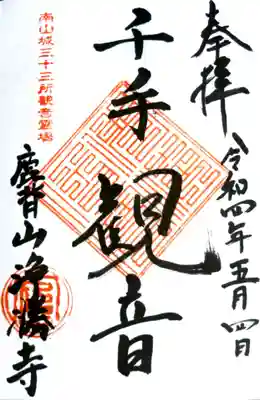 奉拝
令和四年五月四日
千手観音
南山城三十三所觀音靈場
鹿背山浄勝寺